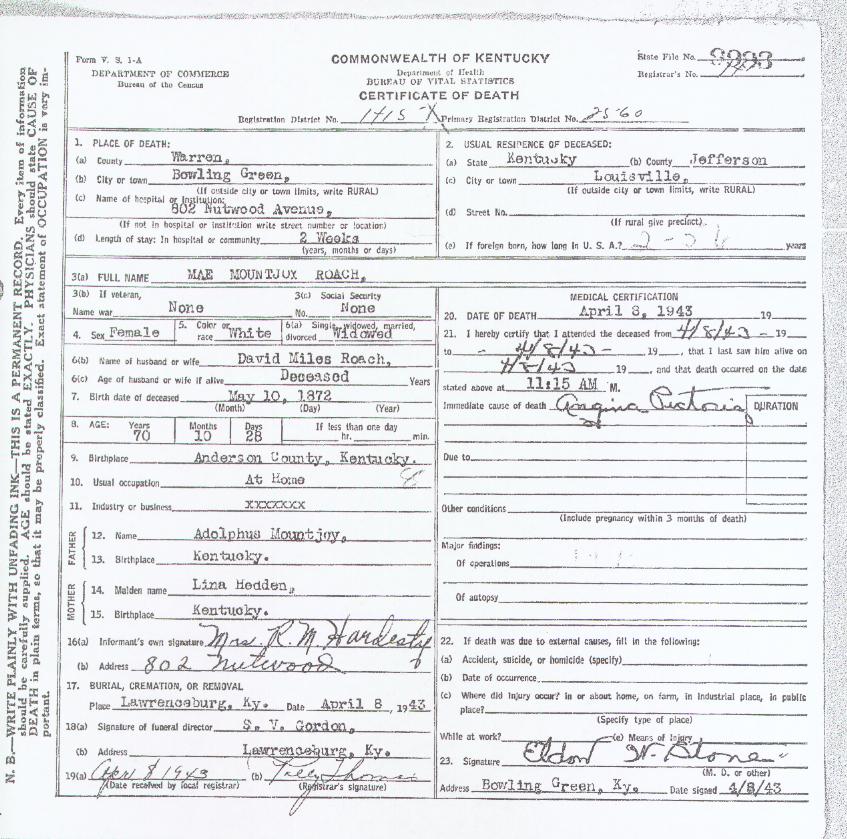 Form V. S. 1-A
DEPARTMENT OF COMMERCE
Bureau of the Census
COMMONWEALTH OF KENTUCKY
Department of Health
BUREAU OF VITAL STATISTICS
CERTIFICATE OF DEATH
State File No.
Registrar's No.
Registration District No. 1715 X Primary Registration District No. 2560
N. B.—WRITE PLAINLY WITH UNFADING INK—THIS IS A PERMANENT RECORD. Every item of information
should be carefully supplied. AGE should be stated EXACTLY. PHYSICIANS should state CAUSE OF
DEATH in plain terms, so that it may be properly classified. Exact statement of OCCUPATION is very im-
portant.
1. PLACE OF DEATH:
(a) County Warren,
(b) City or town Bowling Green,
(If outside city or town limits, write RURAL)
(c) Name of hospital or institution:
802 Nutwood Avenue,
(If not in hospital or institution write street number or location)
(d) Length of stay: In hospital or community 2 Weeks
(years, months or days)
2. USUAL RESIDENCE OF DECEASED:
(a) State Kentucky (b) County Jefferson
(c) City or town Louisville,
(If outside city or town limits, write RURAL)
(d) Street No.
(If rural give precinct)
(e) If foreign born, how long in U. S. A.? years
3(a) FULL NAME MAE MOUNTJOY ROACH,
3(b) If veteran,
Name war None
3(c) Social Security
No. None
4. Sex Female
5. Color or
race White
6(a) Single, widowed, married,
divorced Widowed
6(b) Name of husband or wife David Miles Roach,
6(c) Age of husband or wife if alive Deceased Years
7. Birth date of deceased May 10, 1872
(Month) (Day) (Year)
8. AGE: Years Months Days If less than one day
70 10 28 hr. min.
9. Birthplace Anderson County, Kentucky.
10. Usual occupation At Home
11. Industry or business xxxxxxx
FATHER
12. Name Adolphus Mountjoy,
13. Birthplace Kentucky.
MOTHER
14. Maiden name Lina Hedden,
15. Birthplace Kentucky.
16(a) Informant's own signature Mrs. R. M. Hardesty
(b) Address 802 Nutwood
17. BURIAL, CREMATION, OR REMOVAL
Place Lawrenceburg, Ky. Date April 8, 1943
18(a) Signature of funeral director S. V. Gordon,
(b) Address Lawrenceburg, Ky.
19(a) Apr 8 1943 (b) Thomas
(Date received by local registrar) (Registrar's signature)
MEDICAL CERTIFICATION
20. DATE OF DEATH April 8, 1943 19
21. I hereby certify that I attended the deceased from 4/8/43 - 19
to - 4/8/43 - 19 , that I last saw him alive on
4/8/43 19 , and that death occurred on the date
stated above at 11:15 AM M.
Immediate cause of death Angina Pectoris DURATION
Due to
Other conditions
(Include pregnancy within 3 months of death)
Major findings:
Of operations
Of autopsy
22. If death was due to external causes, fill in the following:
(a) Accident, suicide, or homicide (specify)
(b) Date of occurrence
(c) Where did injury occur? in or about home, on farm, in industrial place, in public
place?
(Specify type of place)
While at work? (e) Means of Injury
23. Signature Eldon W. Stone
(M. D. or other)
Address Bowling Green, Ky. Date signed 4/8/43